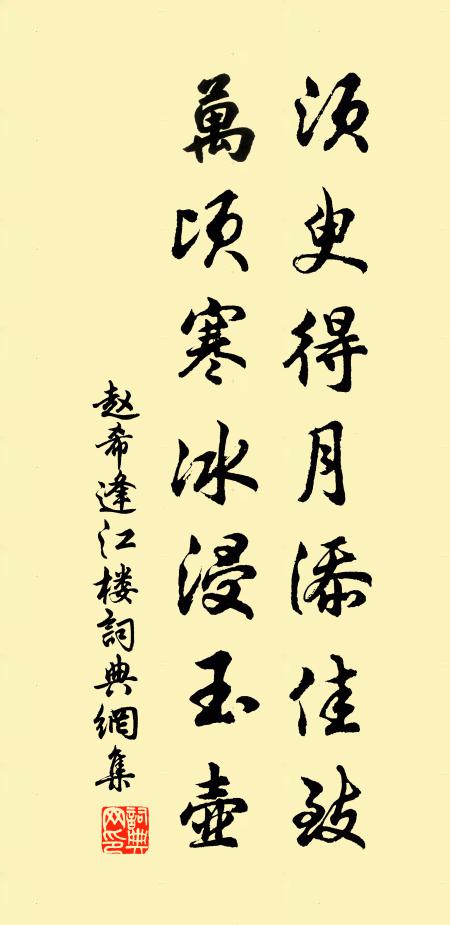 须臾得月添佳致
萬顷寒冰浸玉壶
赵希逢江楼詞典網集
詞典网印